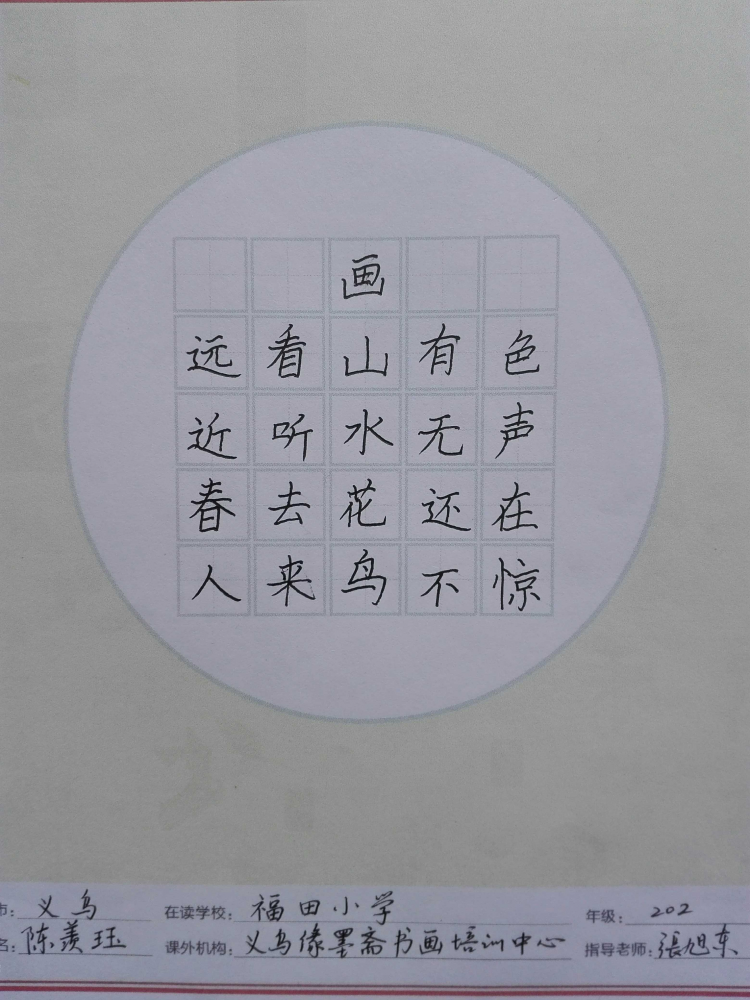 画
远看山有色
近听水无声
春去花还在
人来鸟不惊
市: 义乌 在读学校: 福田小学 年级: 202
名: 陈羡珏 课外机构: 义乌缘墨斋书画培训中心 指导老师: 張旭东